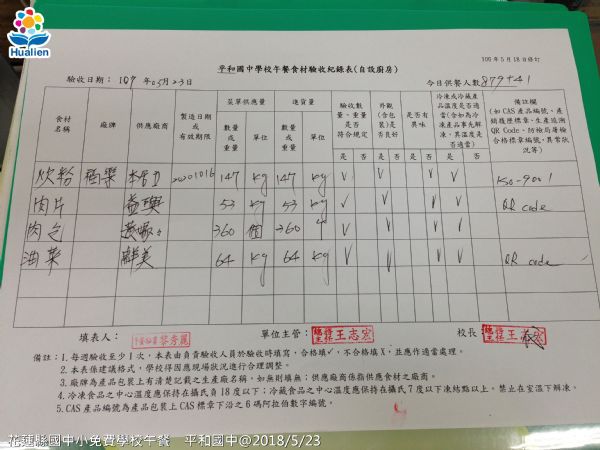 Hualien
100年5月18日修訂
平和國中學校午餐食材驗收紀錄表(自設廚房)
驗收日期：107年05月23日
今日供餐人數 879+41
食材名稱 廠牌 供應廠商 製造日期或有效期限 菜單供應量 進貨量 驗收數量、重量是否符合規定 外觀(含包裝)是否良好 是否有異味 冷凍或冷藏產品溫度是否適當(含如為冷凍產品事先解凍，其溫度是否適當) 備註欄(如CAS產品編號，產銷履歷標章，生產追溯QR Code，防檢局屠檢合格標章編號，異常狀況等)
數量或重量 單位 數量或重量 單位 是 否 是 否 是 否 是 否
炊粉 20201016 147 kg 147 kg V V V V
肉片 益興 53 kg 53 kg V V V V QR code
肉包 360 個 360 V V V V
油菜 鮮美 64 kg 64 kg V V V V QR code
填表人： 單位主管： 王志宏 校長： 王
備註：1.每週驗收至少1次，本表由負責驗收人員於驗收時填寫，合格填✓，不合格填X，並應作適當處理。
2.本表係建議格式，學校得因應現場狀況進行合理調整。
3.廠牌為產品包裝上有清楚記載之生產廠名稱，如無則填無；供應廠商係指供應食材之廠商。
4.冷凍食品之中心溫度應保持在攝氏負18度以下；冷藏食品之中心溫度應保持在攝氏7度以下凍結點以上。禁止在室溫下解凍。
5.CAS產品編號為產品包裝上CAS標章下沿之6碼阿拉伯數字編號。
花蓮縣國中小免費學校午餐 平和國中@2018/5/23